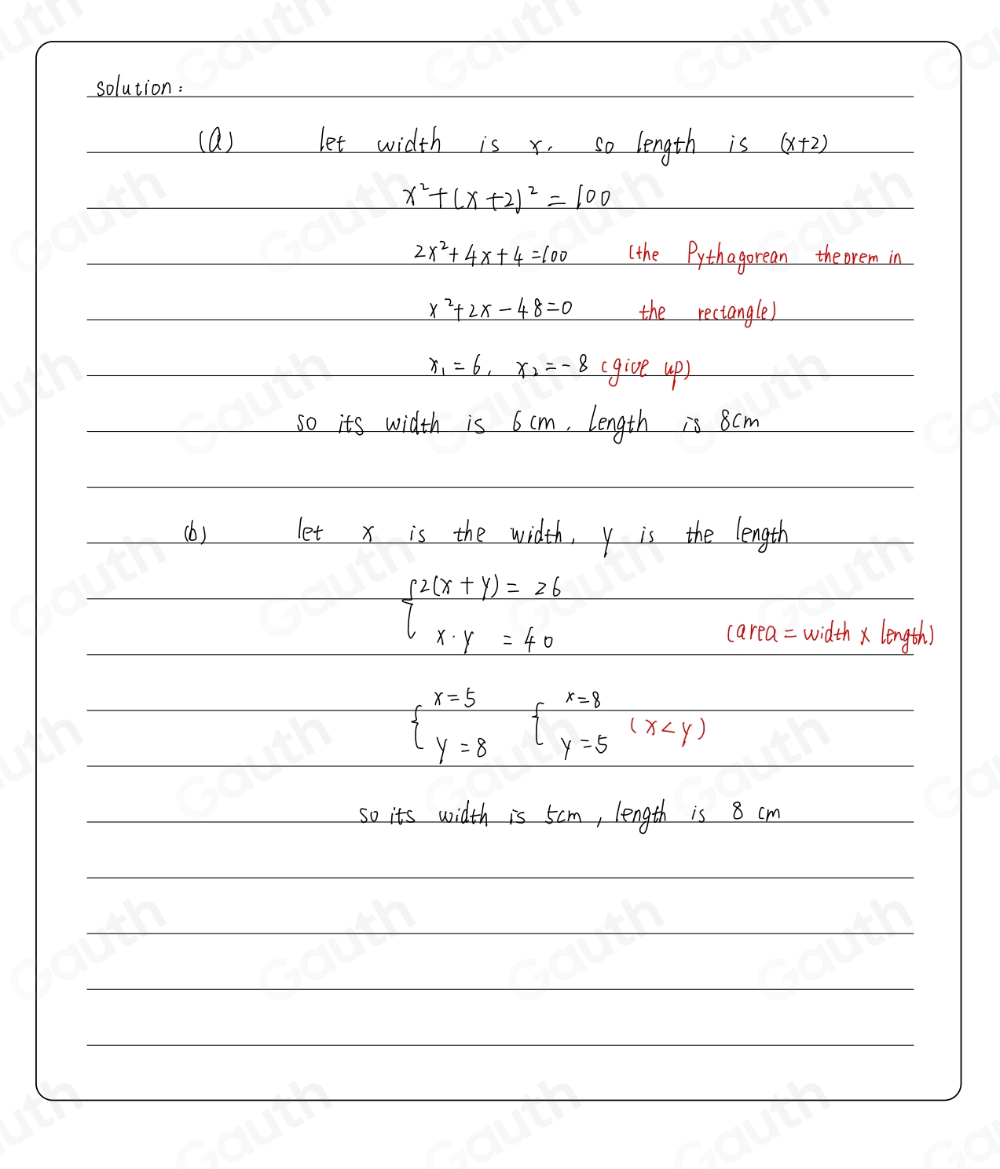 solution:
(a) let width is x, so length is (x+2)
x²+(x+2)²=100
2x²+4x+4=100 (the Pythagorean theorem in
x²+2x-48=0 the rectangle)
x₁=6, x₂=-8 (give up)
so its width is 6cm, length is 8cm
(b) let x is the width, y is the length
{2(x+y)=26
x·y =40 (area=width x length)
{x=5 {x=8
y=8 y=5 (x<y)
so its width is 5cm, length is 8 cm
Gauth